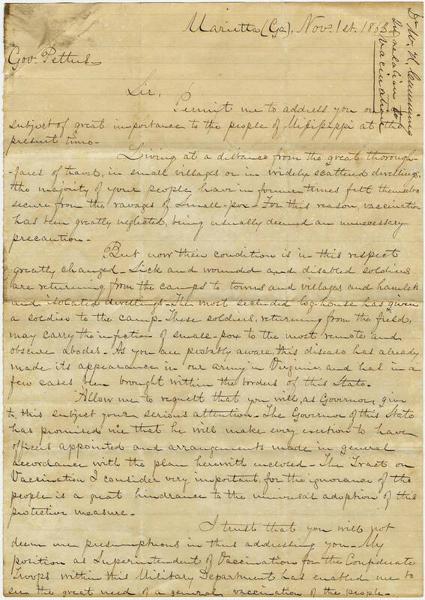 Marietta (Ga), Nov. 1st. 1862
Dr. W. H. Cumming
in relation to
vaccination
Gov. Pettus
Sir,
Permit me to address you on a
subject of great importance to the people of Missisippi at the
present time.
Living at a distance from the great thorough-
fares of travel, in small villages or in widely scattered dwellings,
the majority of your people have in former times felt themselves
secure from the ravages of Small-pox - For this reason, vaccination
has been greatly neglected, being usually deemed an unnecessary
precaution -
But now their condition is in this respect
greatly changed - Sick and wounded and disabled soldiers
are returning from the camps to towns and villages and hamlets
and isolated dwellings - The most secluded log-house has given
a soldier to the camp. These soldiers, returning from the field,
may carry the infection of small-pox to the most remote and
obscure abodes - As you are probably aware this disease has already
made its appearance in our army in Virginia and has in a
few cases been brought within the borders of this State.
Allow me to request that you will, as Governor, give
to this subject your serious attention - The Governor of this State
has promised me that he will make every exertion to have
officers appointed and arrangements made in general
accordance with the plan herewith enclosed - The Tract on
Vaccination I consider very important, for the ignorance of the
people is a great hindrance to the universal adoption of this
protective measure -
I trust that you will not
deem me presumptuous in thus addressing you - My
position as Superintendent of Vaccination for the Confederate
Troops within this Military Department has enabled me to
see the great need of a general vaccination of the people -